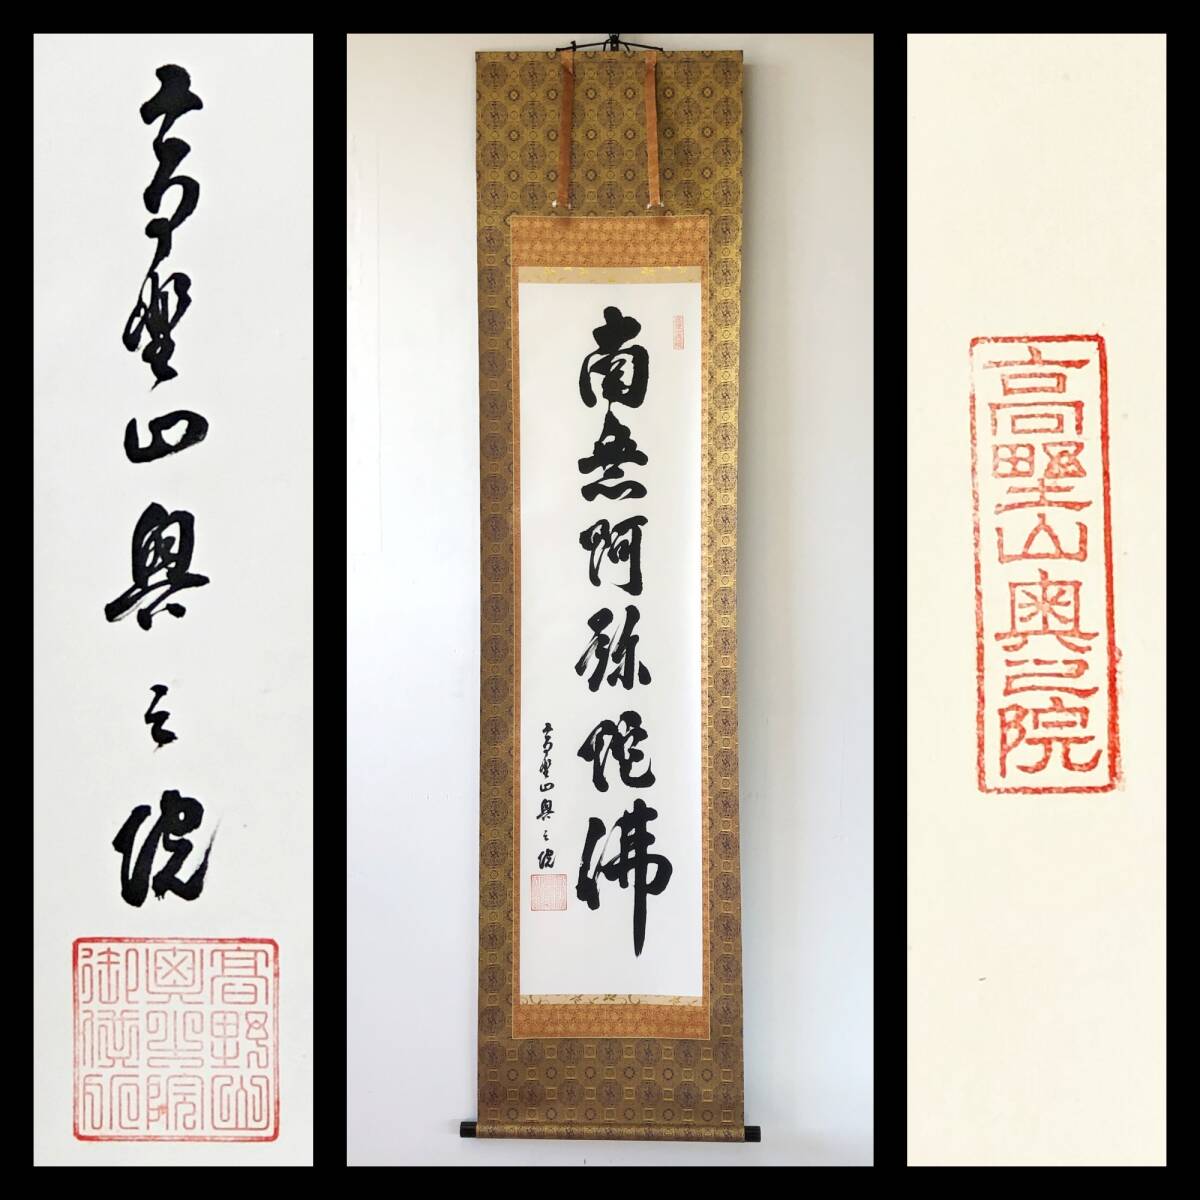 高野山奥之院
高野山
奥之院
御
南無阿弥陀佛
高野山奥之院
高野山奥之院